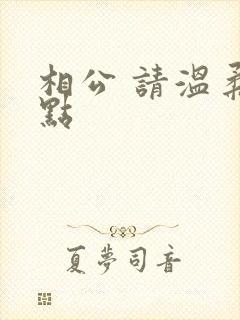 相公 請溫柔
點
夏夢司音